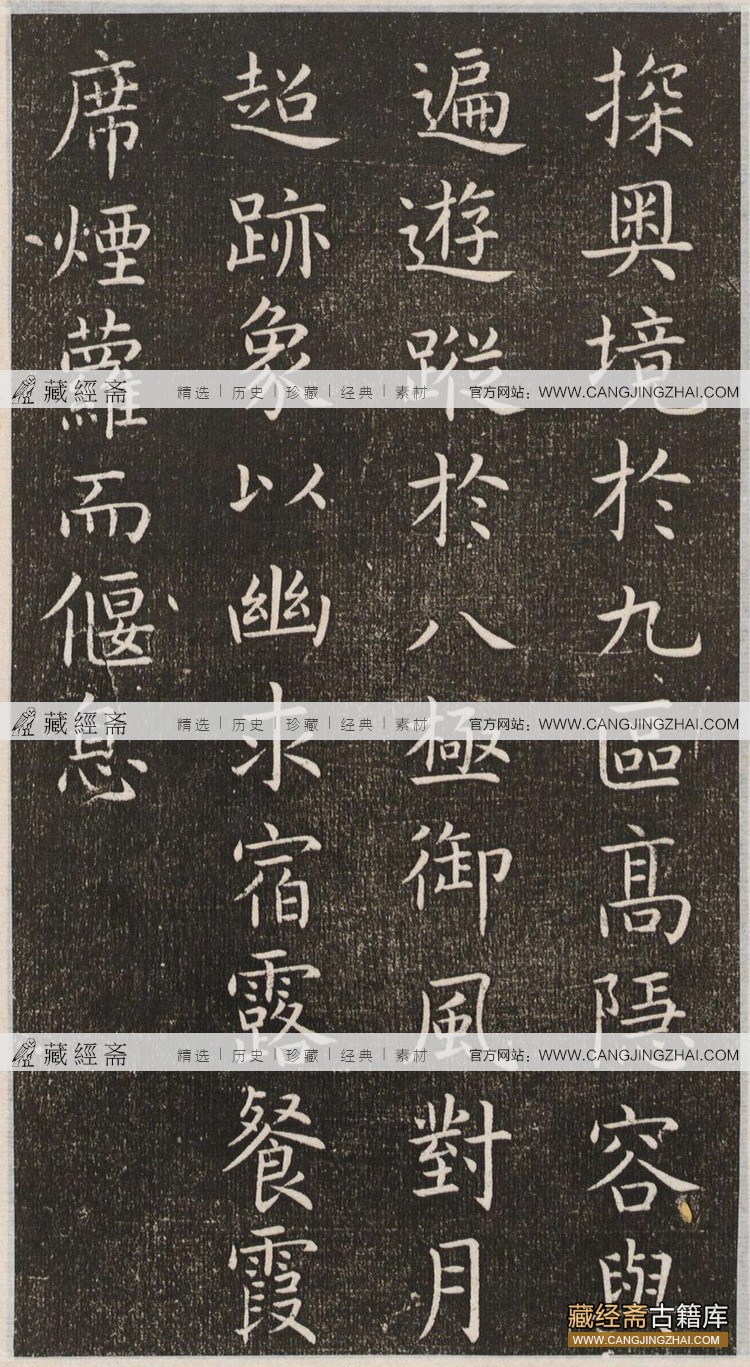 探奥境於九區高隱容與
遍遊蹤於八極御風對月
超跡象以幽求宿露餐霞
席煙蘿而偃息
藏經斋 精选 | 历史 | 珍藏 | 经典 | 素材 官方网站：WWW.CANGJINGZHAI.COM
藏經斋 精选 | 历史 | 珍藏 | 经典 | 素材 官方网站：WWW.CANGJINGZHAI.COM
藏經斋 精选 | 历史 | 珍藏 | 经典 | 素材 官方网站：WWW.CANGJINGZHAI.COM
藏经斋古籍库
WWW.CANGJINGZHAI.COM